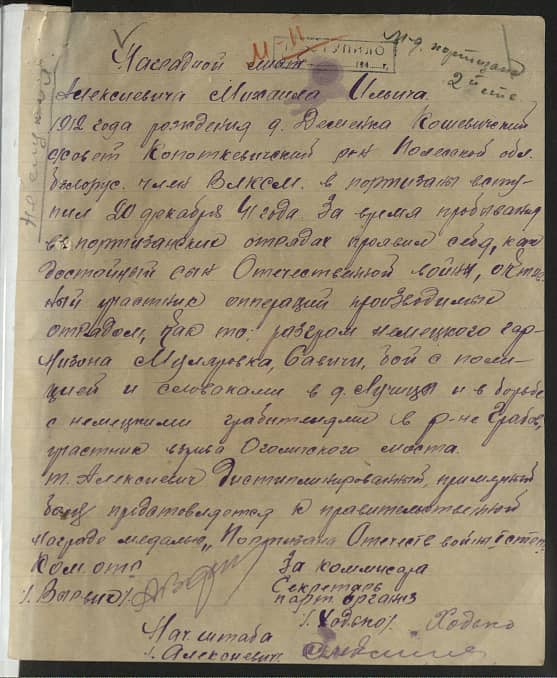 М-д. партизана
2й сте.
ПОСТУПИЛО
Наградной лист
Алексиевича Михаила Ильича
1912 года рождения д. Деменка Кошевичский
с/совет Копоткевичский р-он Полесской обл.
белорус. член ВЛКСМ. в партизаны всту-
пил 20 декабря 41 года. За время пребывания
в партизанских отрядах проявил себя, как
достойный сын Отечественной войны, актив-
ный участник опперации производимые
отрядом, как то: разгром немецкого гар-
низона Муляровка, Савичи, бой с поли-
цией и словаками в д. Лучицы и в борьбе
с немецкими грабителями в р-не Грабов,
участник взрыва Оголичского моста.
т. Алексиевич Дистиплинированный, примерный
боец представляется к правительственной
награде медалью „Партизана Отечеств войны I степ.
Ком отр
За коммисара
Секретарь
парт. организ
/. Ходько/ Ходько
Нач штаба
/. Алексиевич.